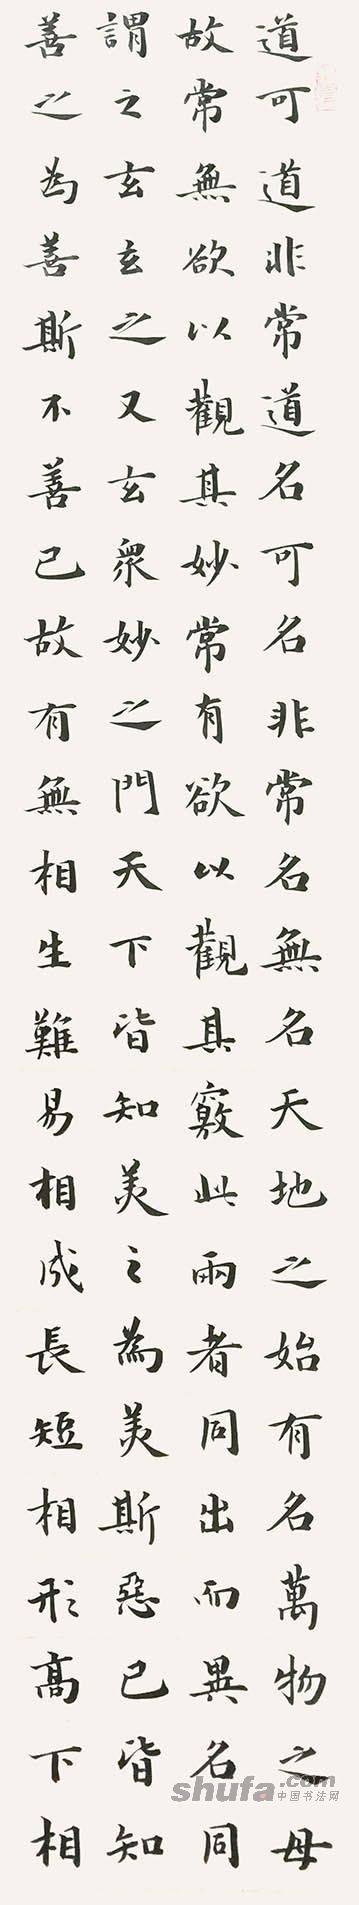 道可道非常道名可名非常名無名天地之始有名萬物之母
故常無欲以觀其妙常有欲以觀其竅此兩者同出而異名同
謂之玄玄之又玄衆妙之門天下皆知美之為美斯惡已皆知
善之為善斯不善已故有無相生難易相成長短相形高下相
shufa.com
中国书法网